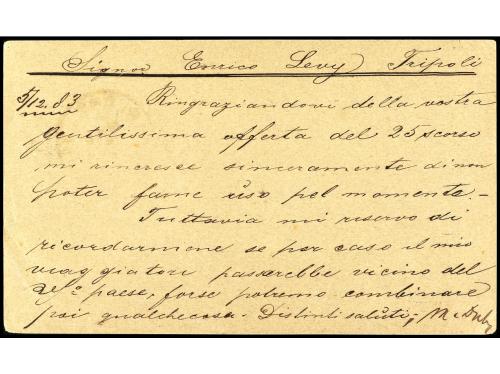 Signor Enrico Levy Tripoli
5/12.83 Ringraziandovi della vostra
gentilissima offerta del 25 scorso
mi rincresce sinceramente di non
poter farne uso pel momento.-
Tuttavia mi riservo di
ricordarmene se per caso il mio
viaggiatori passerebbe vicino del
paese, forse potremo combinare
poi qualchecosa - Distinti saluti,